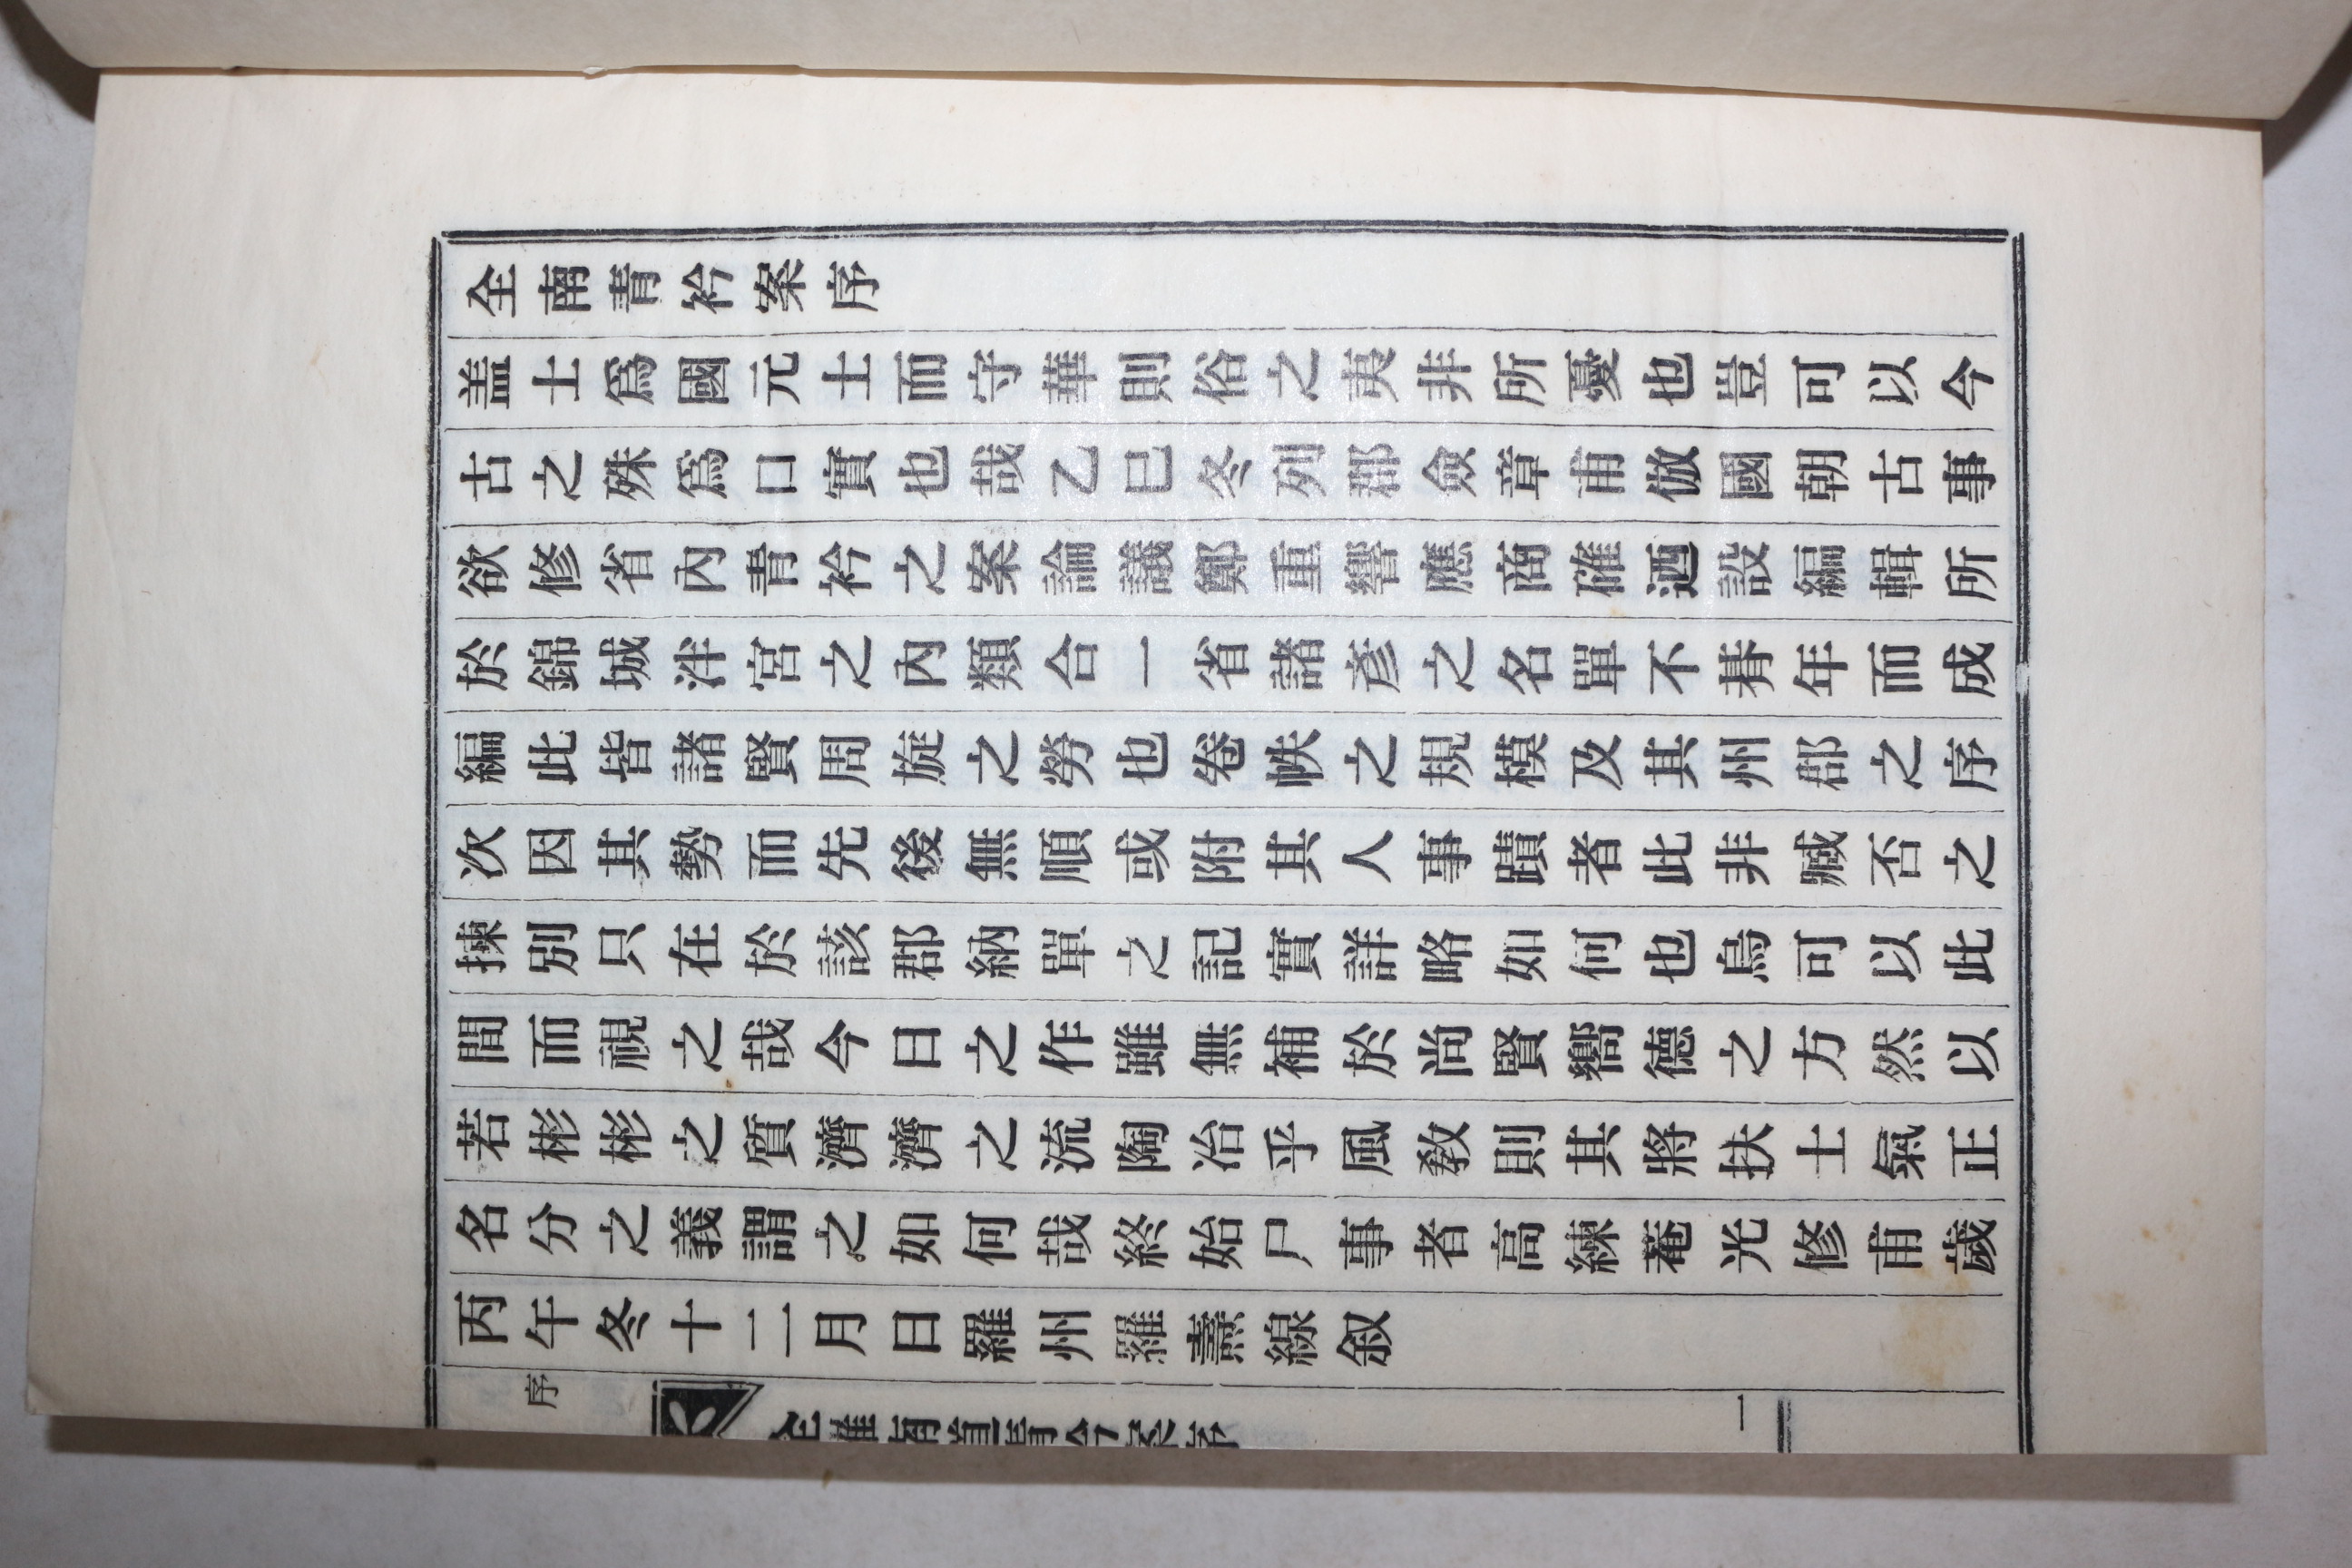 全南青衿案序
盖士爲國元士而守華則俗之夷非所憂也豈可以今
古之殊爲口實也哉乙巳冬列郡僉章甫倣國朝古事
欲修省內靑衿之案論議鄭重響應商確迺設編輯所
於錦城泮宮之內類合一省諸彦之名單不朞年而成
編此皆諸賢周旋之勞也卷帙之規模及其州郡之序
次因其勢而先後無順或附其人事蹟者此非臧否之
揀別只在於該郡納單之記實詳略如何也烏可以此
間而視之哉今日之作雖無補於尚賢嚮德之方然以
若彬彬之質濟濟之流陶冶乎風敎則其將扶士氣正
名分之義謂之如何哉終始尸事者高練菴光修甫歲
丙午冬十二月日羅州羅燾線叙
序
一